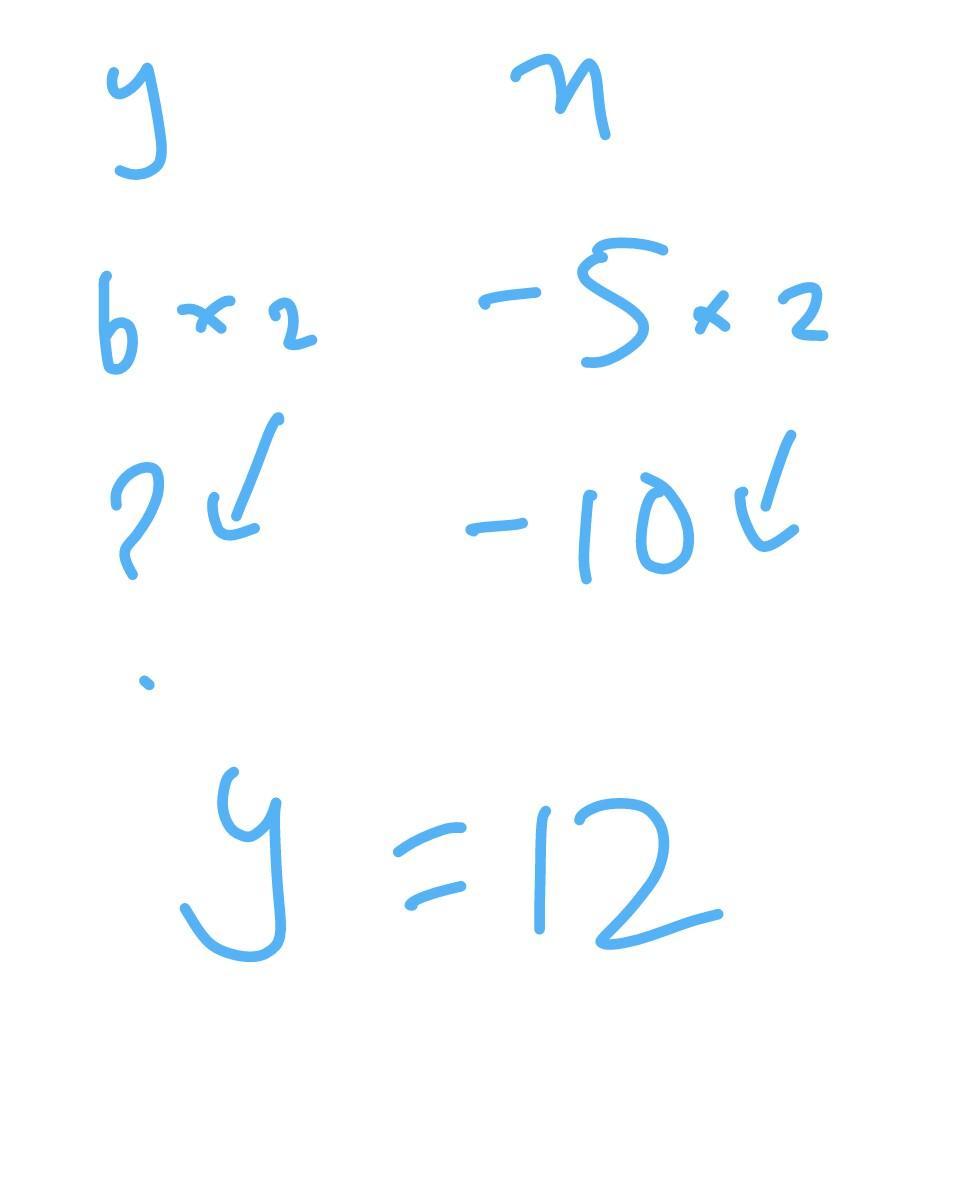 y n
6 × 2 - 5 × 2
? - 10
y = 12